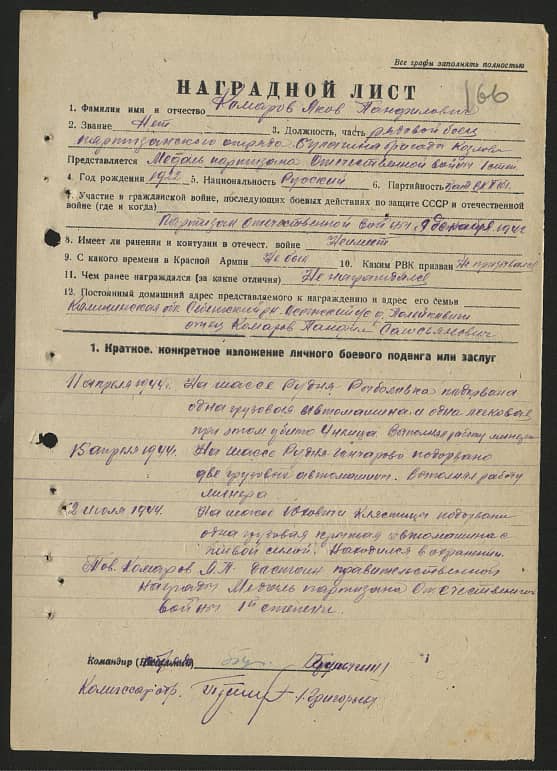 Все графы заполнять полностью
НАГРАДНОЙ ЛИСТ
166
1. Фамилия имя и отчество Комаров Яков Панфилович
2. Звание Нет 3. Должность, часть рядовой боец
партизанского отряда бригады
Представляется Медаль партизана Отечественной войны I степ.
4. Год рождения 1922 5. Национальность Русский 6. Партийность
7. Участие в гражданской войне, последующих боевых действиях по защите СССР и отечественной
войне (где и когда)
Партизан отечественной войны декабря
8. Имеет ли ранения и контузии в отечест. войне Не имеет
9. С какого времени в Красной Армии Не был 10. Каким РВК призван Не призывался
11. Чем ранее награждался (за какие отличия) Не награждался
12. Постоянный домашний адрес представляемого к награждению и адрес его семьи
Калининская обл.
отец Комаров Панфил
1. Краткое, конкретное изложение личного боевого подвига или заслуг
11 апреля 1944г. На шоссе Рудня подорвана
одна грузовая автомашина и одна легковая
при этом убито 4 фрица. Выполнял работу минера
15 апреля 1944г. На шоссе Рудня подорвано
две грузовых автомашин. Выполнял работу
минера
2 июля 1944г. На шоссе Клястица подорвана
одна грузовая крытая автомашина с
живой силой. Находился в охранении.
Тов. Комаров Я.П. достоин правительственной
награды Медаль партизана Отечественной
войны I степени.
Командир
Комиссар отр. Григорьев